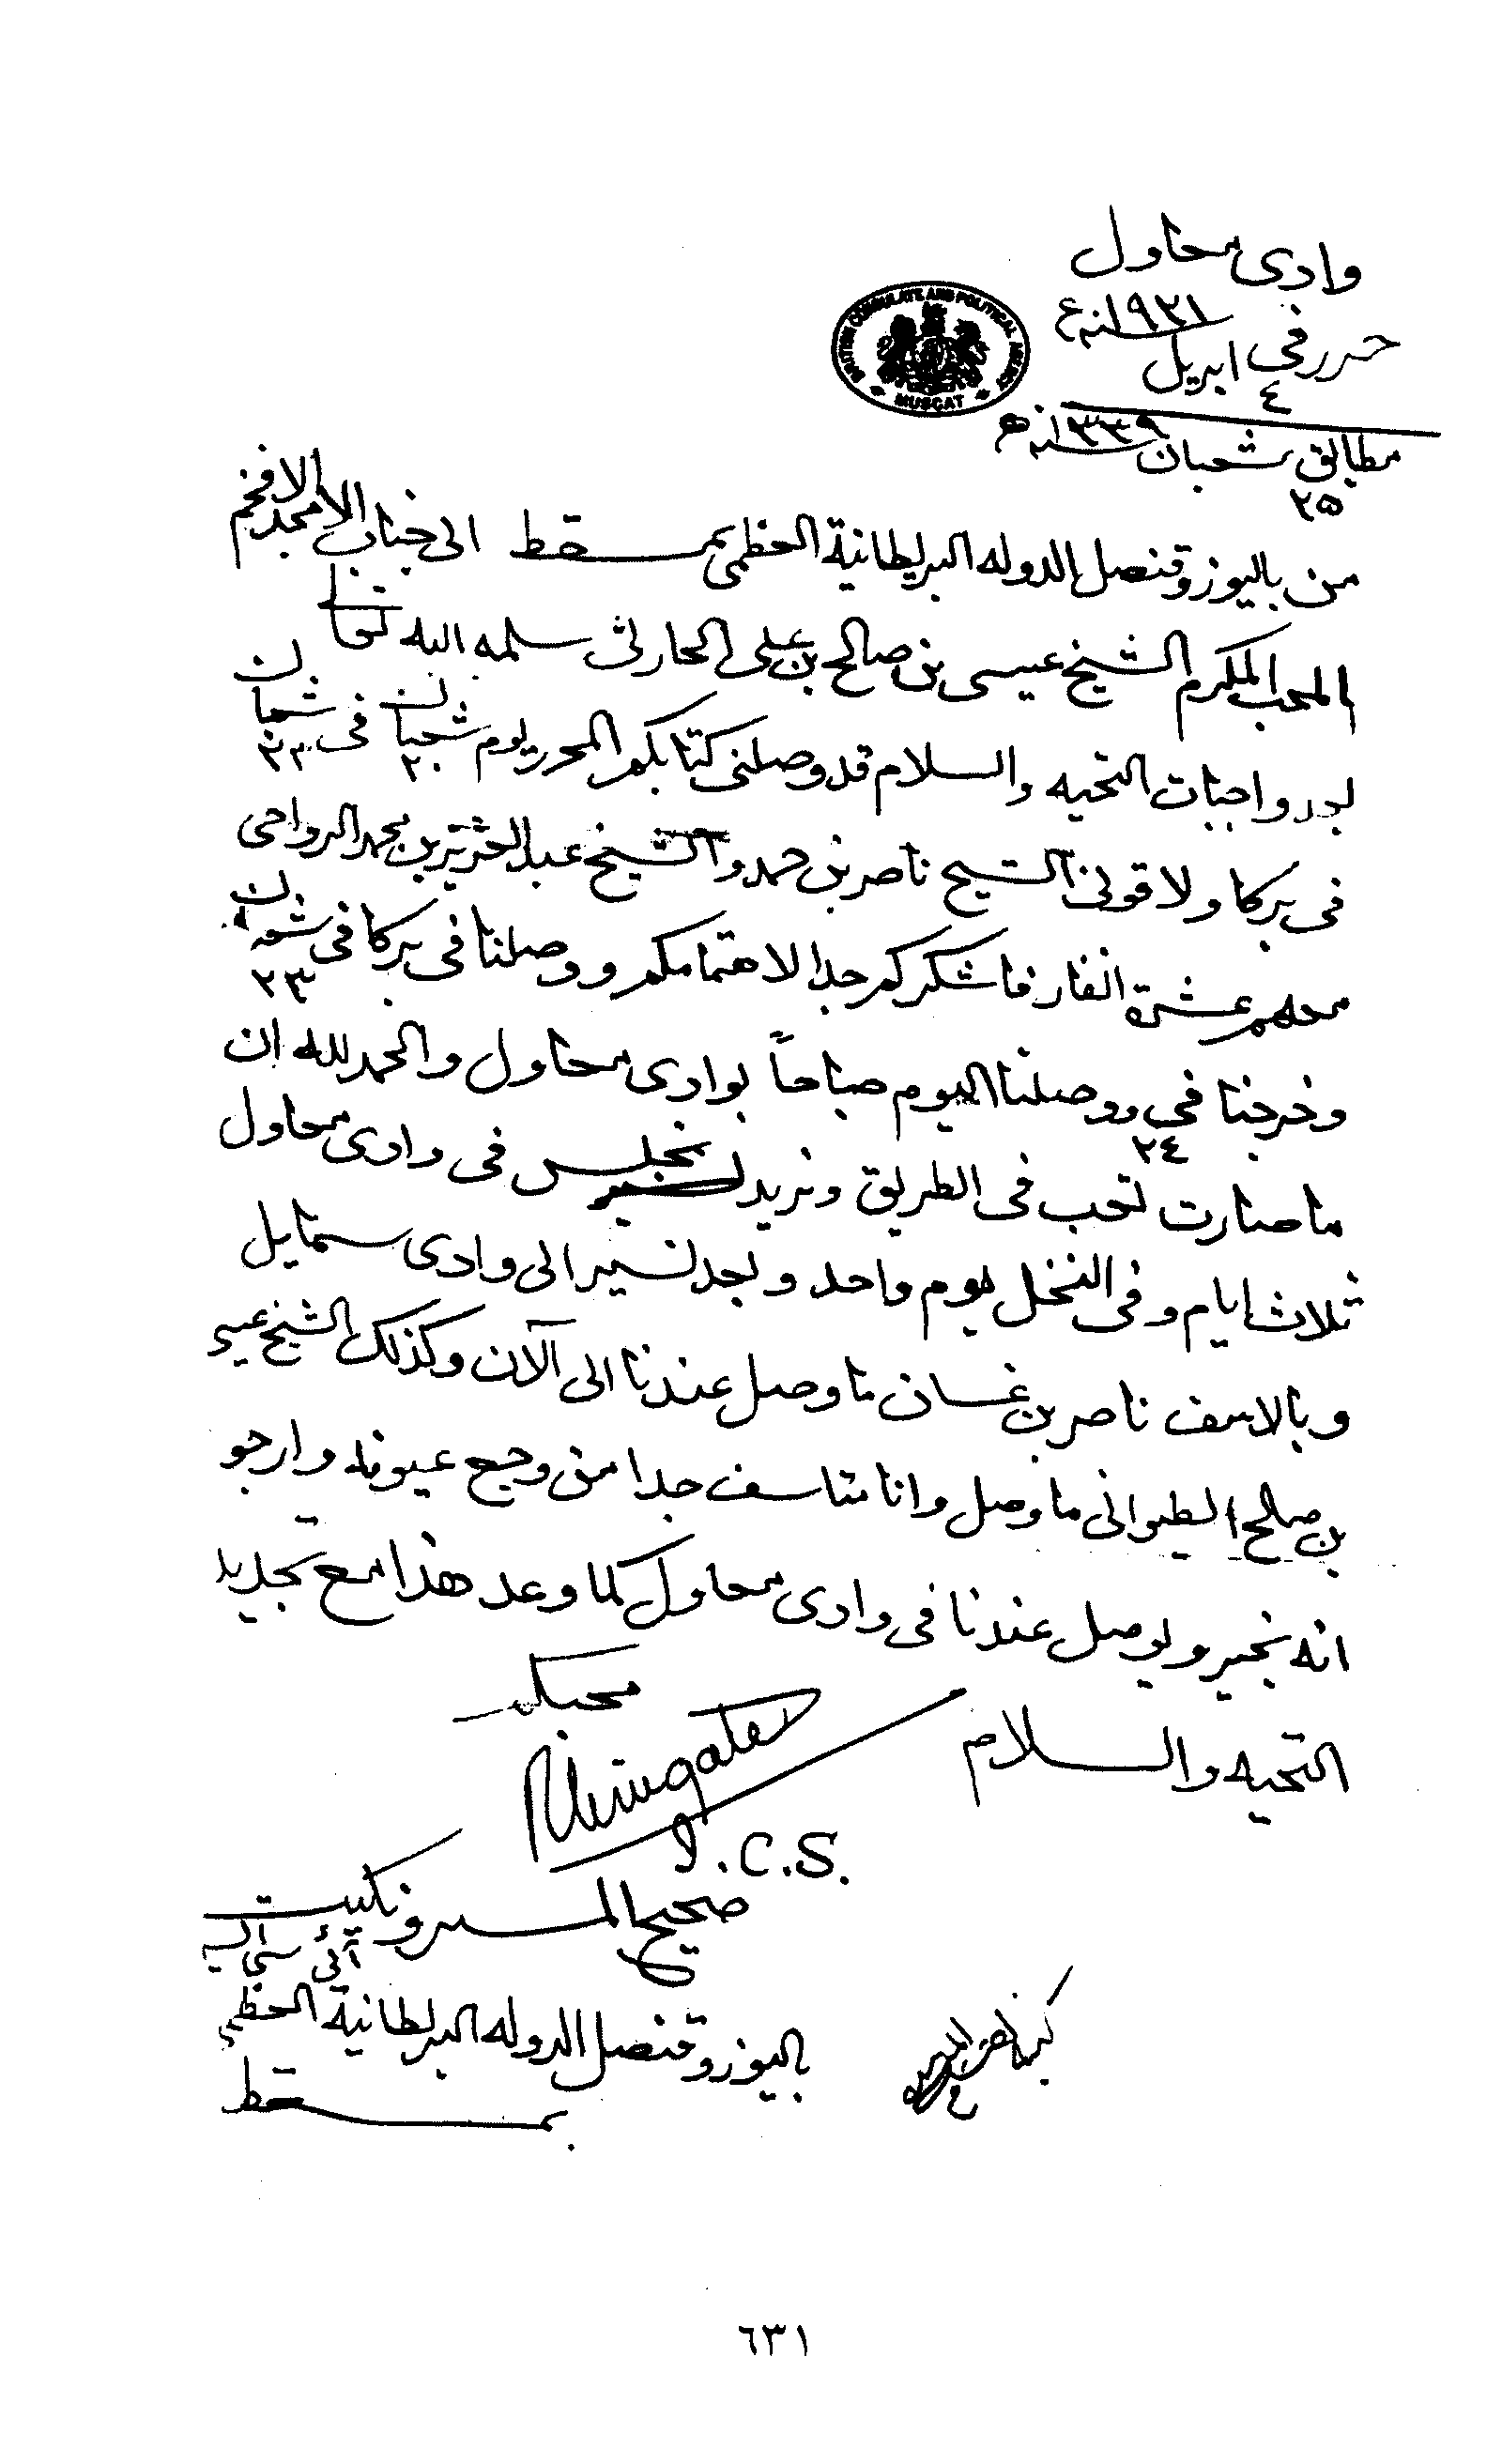 وادى سمحاول
سنة ١٩٢١ع
حرر فى ٤ ابريل
BRITISH CONSULATE AND POLITICAL AGENCY
MUSCAT
مطابق ٢٥ شعبان سنة ١٣٣٩ه
من باليوز وقنصل الدوله البريطانية العظمى بمسقط الى جناب الامجد الافخم
المحب المكرم الشيخ عيسى بن صالح بن على الحارثى سلمه الله تعالى
بعد واجبات التحيه والسلام قد وصلنى كتابكم المحرر يوم ٢٠ شعبان فى شعبان
فى بركا ولاقونى الشيخ ناصر بن حمد والشيخ عبد العزيز بن محمد الرواحى
معهم عشرة انفار فاشكركم جدا لاهتمامكم ووصلنا فى بركا فى ٢٣
وخرجنا فى ٢٤ ووصلنا اليوم صباحاً بوادى سمحاول والحمد لله ان
ما صارت تعب فى الطريق ونريد نجلس فى وادى سمحاول
ثلاث ايام وفى النخل يوم واحد وبعد نسير الى وادى سمايل
وبالاسف ناصر بن غسان ما وصل عندنا الى آلان وكذلك الشيخ عيسى
بن صالح الطيوانى ما وصل وانا متاسف جدا من وجع عيونه وارجو
انه بخير ويوصل عندنا فى وادى سمحاول كما وعد هذا مع تجديد
التحيه والسلام
محبكم
RWingate
I.C.S.
صحيح المستر ونكيت
آئى سى اليس
باليوز وقنصل الدوله البريطانية العظمى
بمسقط
٦٣١